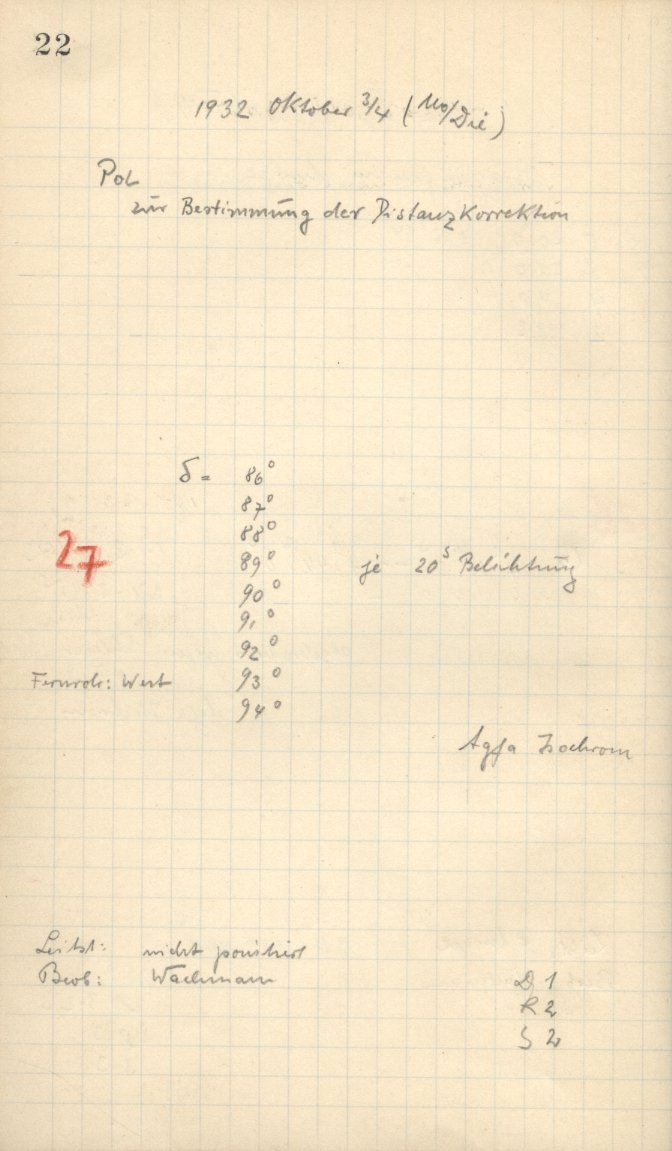 22
1932 Oktober 3/4 (Mo/Die)
Pol
zur Bestimmung der Distanzkorrektion
δ = 86°
87°
88°
27
89° je 20ˢ Belichtung
90°
91°
92°
Fernrohr: West 93°
94°
Agfa Isochrom
Leitst: nicht pointiert
Beob: Wachmann
D 1
R 2
S 2